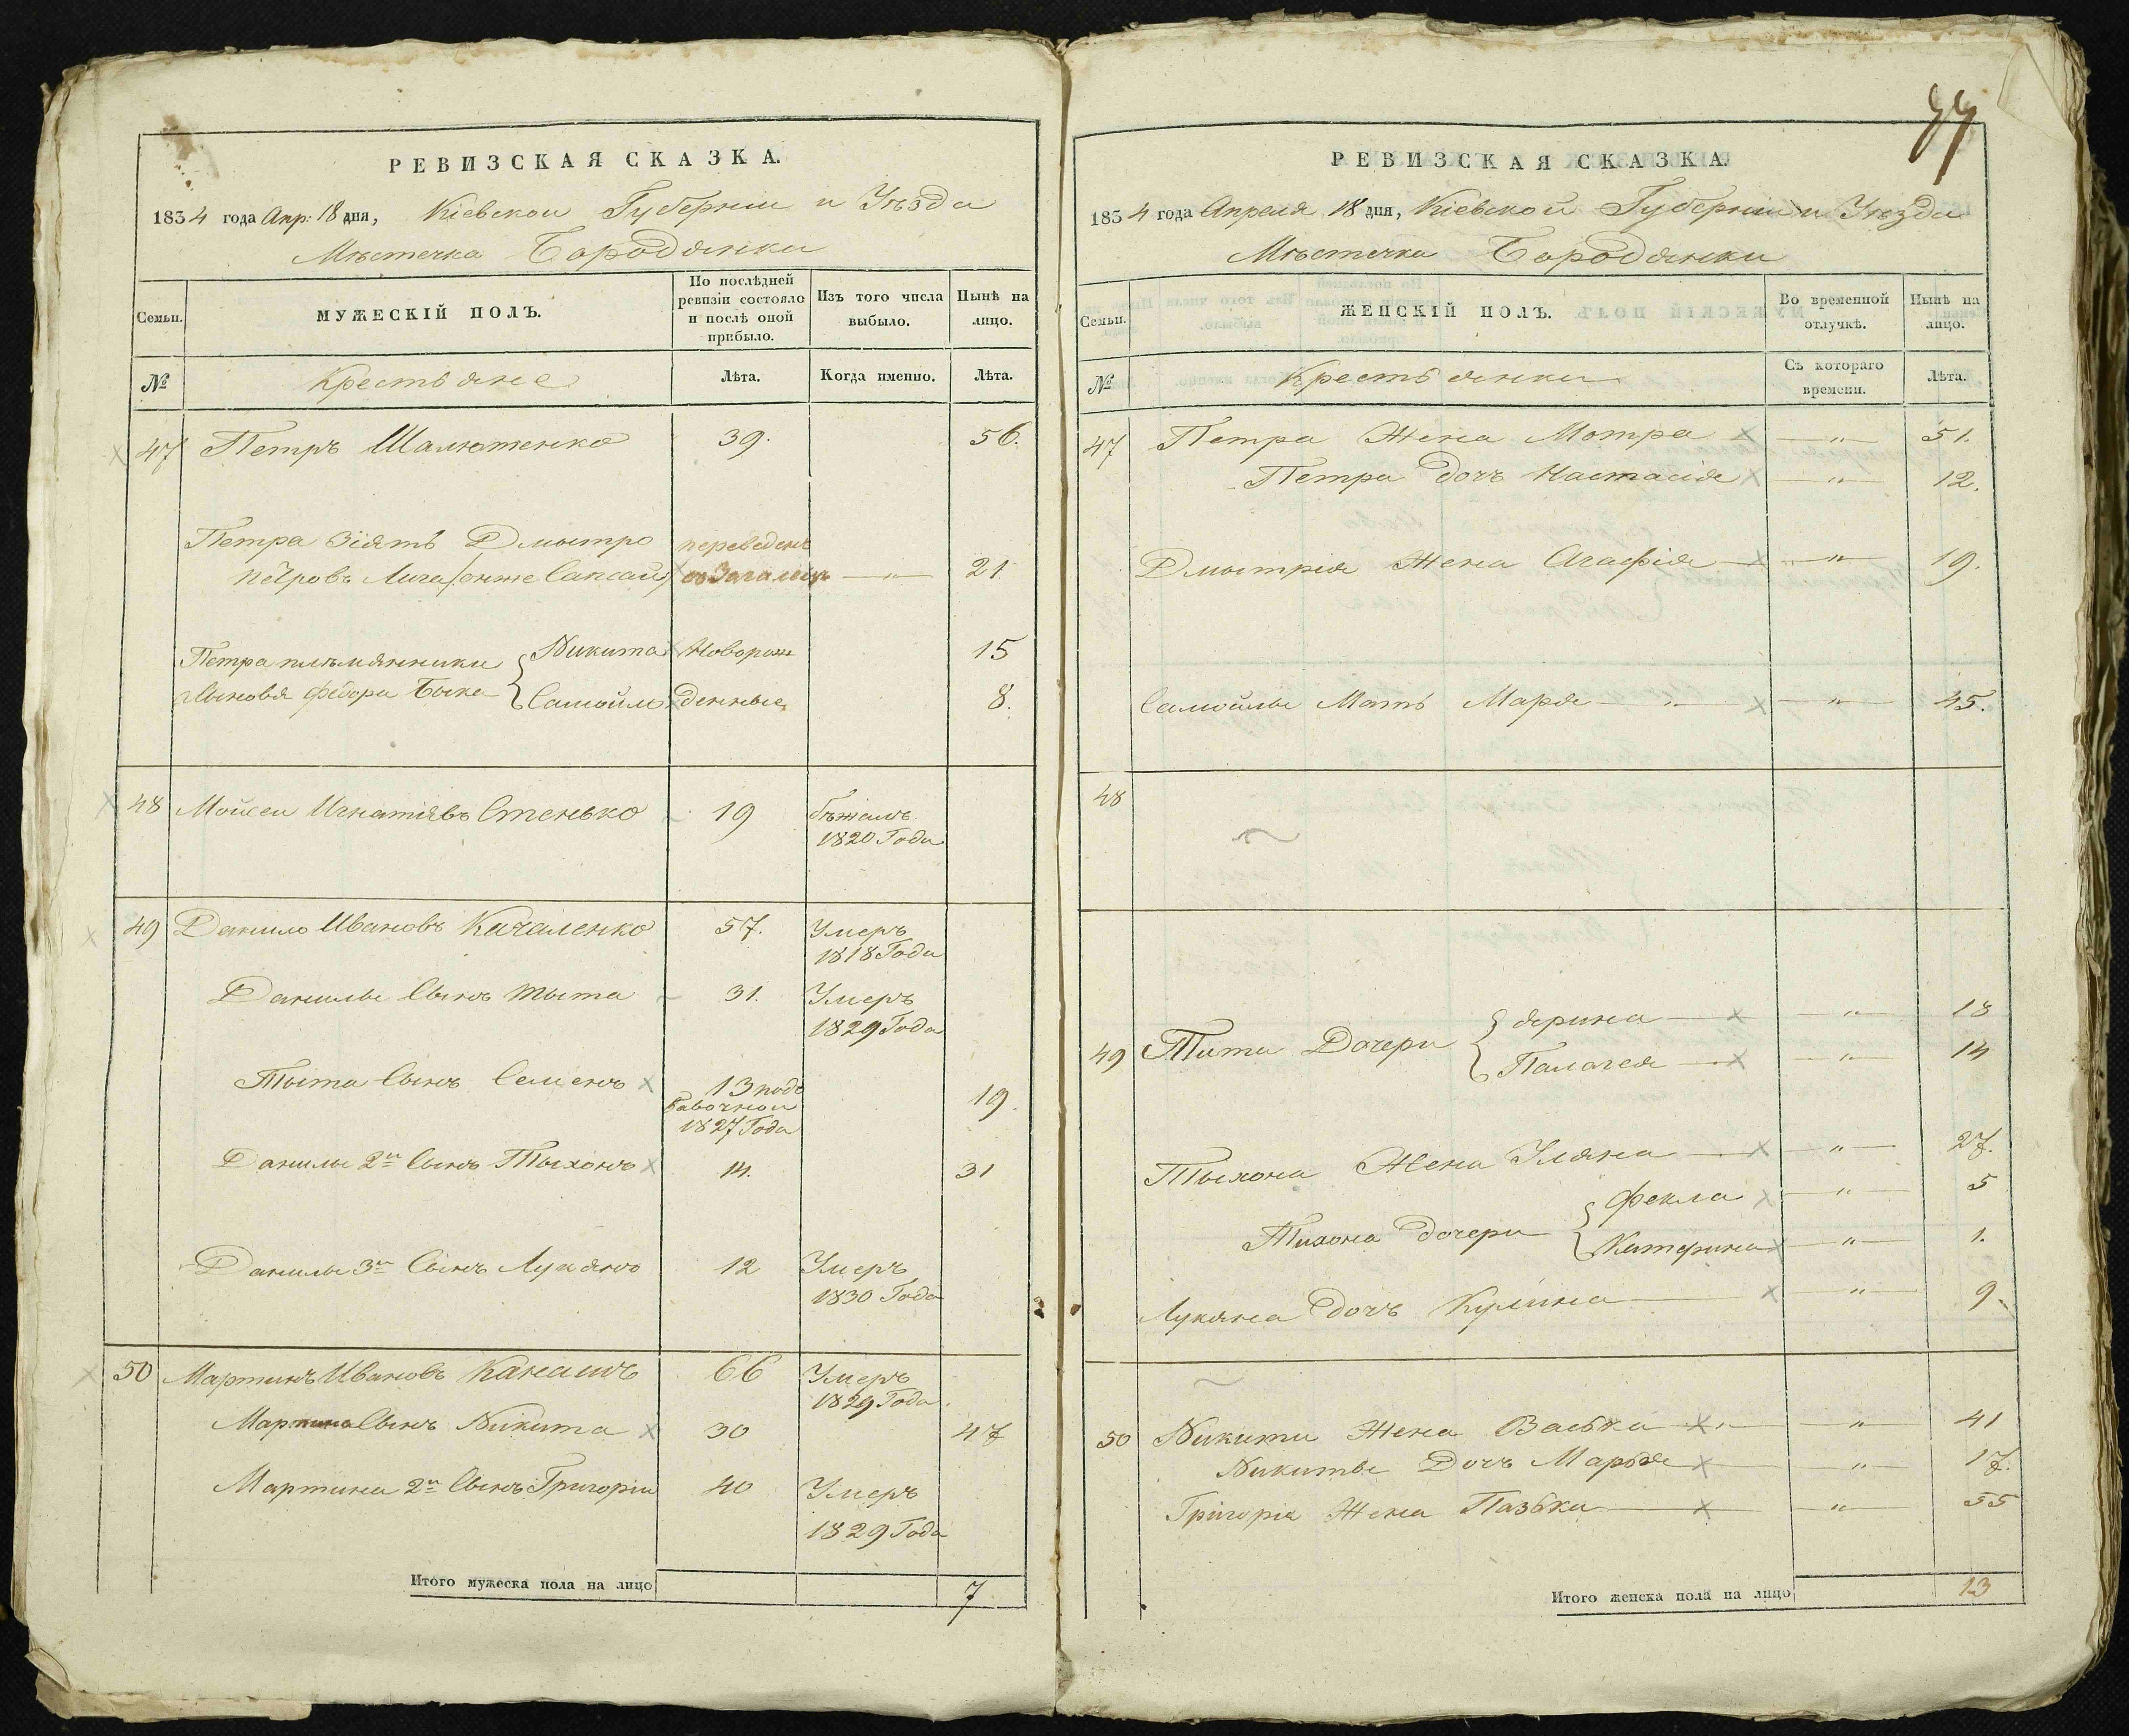 РЕВИЗСКАЯ СКАЗКА.
1834 года Апр: 18 дня, Кіевской Губерніи и Уѣзда
Мѣстечка Бородянки
Семьи.
МУЖЕСКІЙ ПОЛЪ.
По послѣдней ревизіи состояло и послѣ оной прибыло.
Изъ того числа выбыло.
Нынѣ на лицо.
№
Крестьяне
Лѣта.
Когда именно.
Лѣта.
47 Петръ Шалютенко 39. 56.
Петра Зіять Дмытро переведенъ
Петровъ Лига /онже Сапсай/ 21
Петра племянники Никита Новорож 15
сыновя Федора Быка Самойло денные 8.
48 Мойсеи Игнатіявъ Стенько 19 бѣжалъ
1820 Года
49 Данило Ивановъ Качаленко 57. Умеръ
1818 Года
Данилы Сынъ Тыта 31. Умеръ
1829 Года
Тыта Сынъ Семенъ 13 подо
бавочной 19.
1827 Года
Данилы 2й Сынъ Тыхонъ 14. 31
Данилы 3й Сынъ Лукянъ 12 Умеръ
1830 Года
50 Мартинъ Ивановъ Канашъ 66 Умеръ
1829 Года
Мартина Сынъ Никита 30 47
Мартина 2й Сынъ Григоріи 40 Умеръ
1829 Года
Итого мужеска пола на лицо 7
РЕВИЗСКАЯ СКАЗКА.
1834 года Апреля 18 дня, Кіевской Губерніи и Уѣзда
Мѣстечка Бородянки
Семьи.
ЖЕНСКІЙ ПОЛЪ.
Во временной отлучкѣ.
Нынѣ на лицо.
№
Крестьянки
Съ котораго времени.
Лѣта.
47 Петра Жена Мотра — " — 51.
Петра дочъ Настасія — " — 12.
Дмытрія Жена Агафія — " — 19.
Самойлы Мать Маря — " — 45.
48
49 Тита Дочери Ярина — " — 18
Палагея — " — 14
Тыхона Жена Уляна — " — 27.
Тихона дочери Фекла — " — 5
Катерина — " — 1.
Лукяна дочъ Кулина — " — 9
50 Никиты Жена Васька — " — 41
Никиты Дочъ Марья — " — 17.
Григорія Жена Пазька — " — 55
Итого женска пола на лицо 13